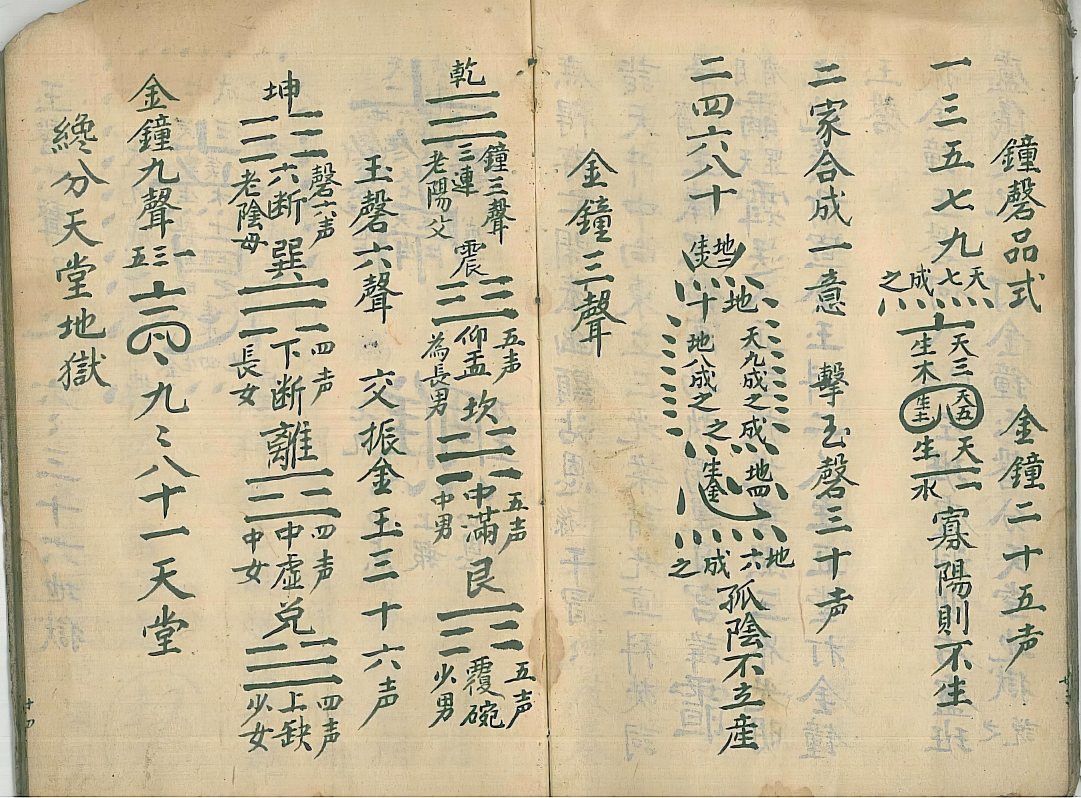 鐘磬品式 金鐘二十五声
一三五七九 天七成之 天三生木 天五生土 天一生水 寡陽則不生
二家合成一意 擊玉磬三十声
二四六八十 地二生火 地十成之 地八成之 天九成之 地四生金 地六成之 孤陰不立産
金鐘三聲
乾 鐘三聲 三連 老陽父 震 五声 仰盂 為長男 坎 五声 中滿 中男 艮 五声 覆碗 少男
玉磬六聲 交振金玉三十六声
坤 磬六声 六断 老陰母 巽 四声 下断 長女 離 四声 中虚 中女 兑 四声 上缺 少女
金鐘九聲 一三五 九〻八十一天堂
纔分天堂地獄